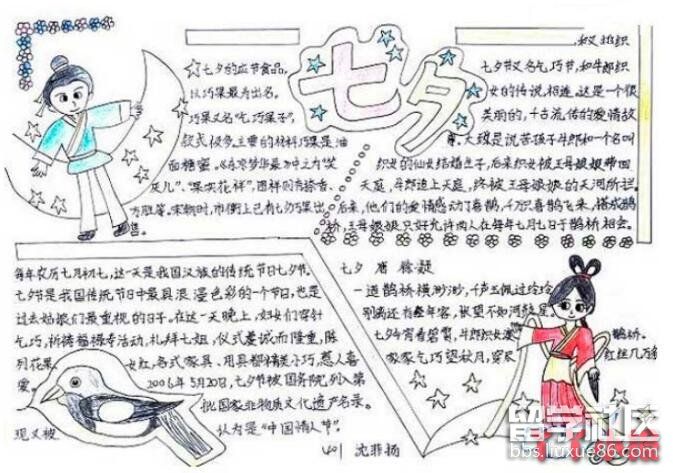 七夕
七夕的应节食品,
以巧果最为出名。
巧果又名"乞巧果子",
款式极多。主要的材料巧果是油
面糖蜜。《东京梦华录》中之为"笑
厌儿"、"果实花样",图样则有捺香、
方胜等。宋朝时,市街上已有七夕巧果出
售。
七夕节又名乞巧节,和牛郎织
女的传说相连,这是一个很
美丽的,千古流传的爱情故
事。大致是说苦孩子牛郎和一个名叫
织女的仙女结婚生子,后来织女被王母娘娘带回
天庭,牛郎追上天庭,终被王母娘娘的天河所拦。
后来,他们的爱情感动了喜鹊,千万只喜鹊飞来,搭成鹊
桥,王母娘娘只好允许两人在每年七月七日于鹊桥相会。
每年农历七月初七,这一天是我国汉族的传统节日七夕节。
七夕节是我国传统节日中最具浪漫色彩的一个节日,也是
过去姑娘们最重视的日子。在这一天晚上,妇女们穿针
乞巧,祈祷福禄寿活动,礼拜七姐,仪式虔诚而隆重,陈
列花果、女红,各式家具、用具都精美小巧、惹人喜
爱。2006年5月20日,七夕节被国务院列入第
一批国家非物质文化遗产名录。
现又被认为是"中国情人节"。
七夕 唐 徐凝
一道鹊桥横渺渺,千声玉佩过玲玲
别离还有经年客,怅望不如河鼓星
七夕今宵看碧霄,牛郎织女渡鹊桥。
家家乞巧望秋月,穿尽红丝几万条
401 沈菲扬
留学社区
bbs.liuxue86.com